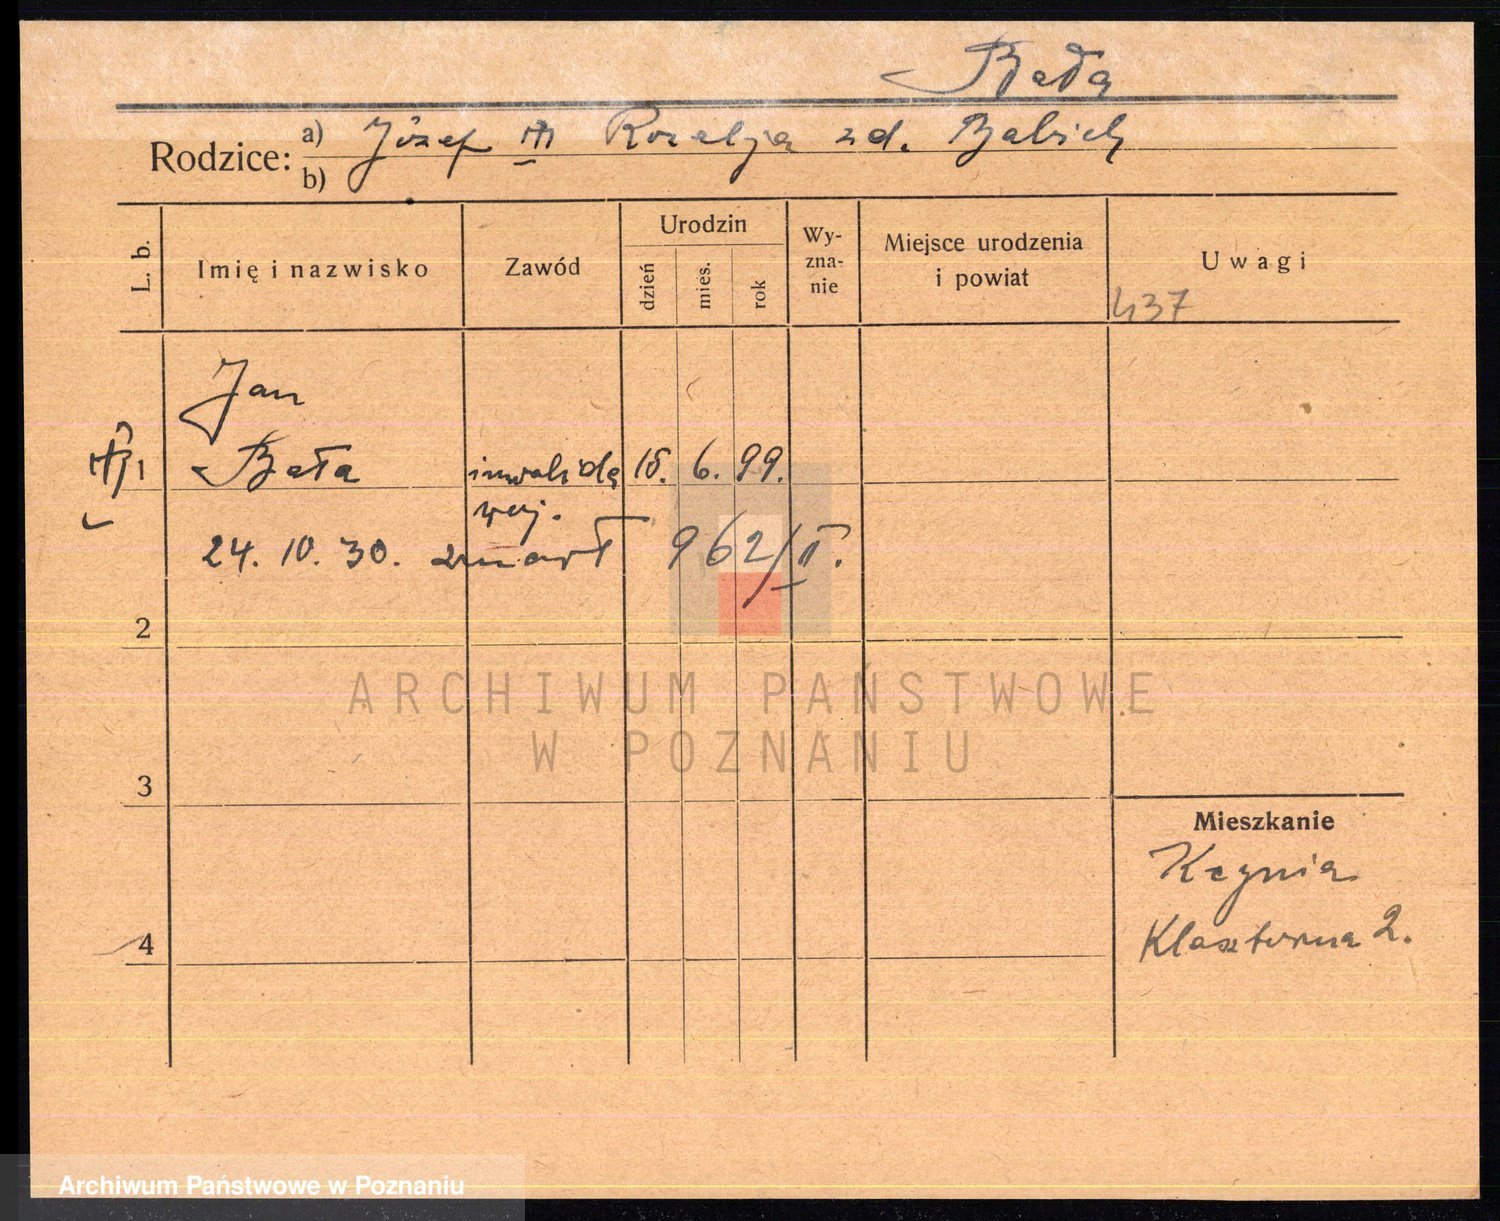 Bała
Rodzice: a) Józef i Rozalja zd. Babich
b)
L. b.
Imię i nazwisko
Zawód
Urodzin
dzień
mies.
rok
Wy-
zna-
nie
Miejsce urodzenia
i powiat
Uwagi
437
Jan
1 Bała inwalida 15. 6. 99.
woj.
24. 10. 30. zmarł 962/II.
2
3
4
Mieszkanie
Kcynia
Klasztorna 2.
ARCHIWUM PAŃSTWOWE
W POZNANIU
Archiwum Państwowe w Poznaniu